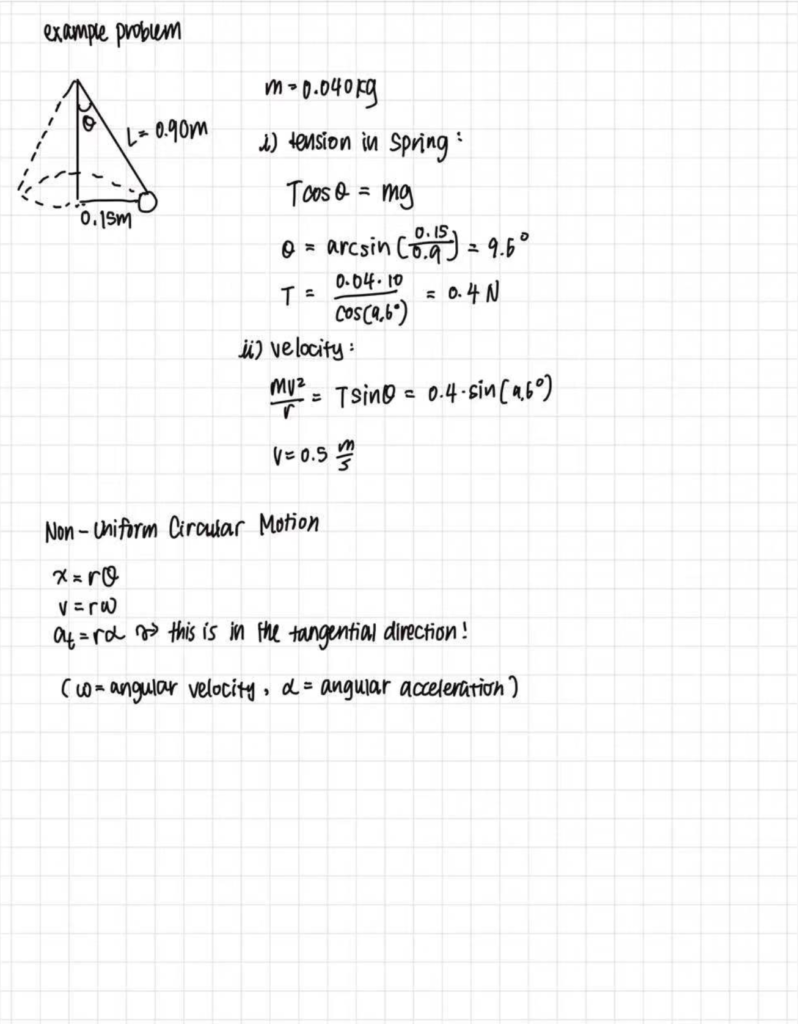 example problem
θ
L = 0.90m
0.15m
m = 0.040 kg
i) tension in spring:
Tcosθ = mg
θ = arcsin(0.15/0.9) = 9.6°
T = 0.04·10/cos(9.6°) = 0.4 N
ii) velocity:
mv²/r = Tsinθ = 0.4·sin(9.6°)
v = 0.5 m/s
Non-Uniform Circular Motion
x = rθ
v = rω
at = rα → this is in the tangential direction!
(ω = angular velocity, α = angular acceleration)